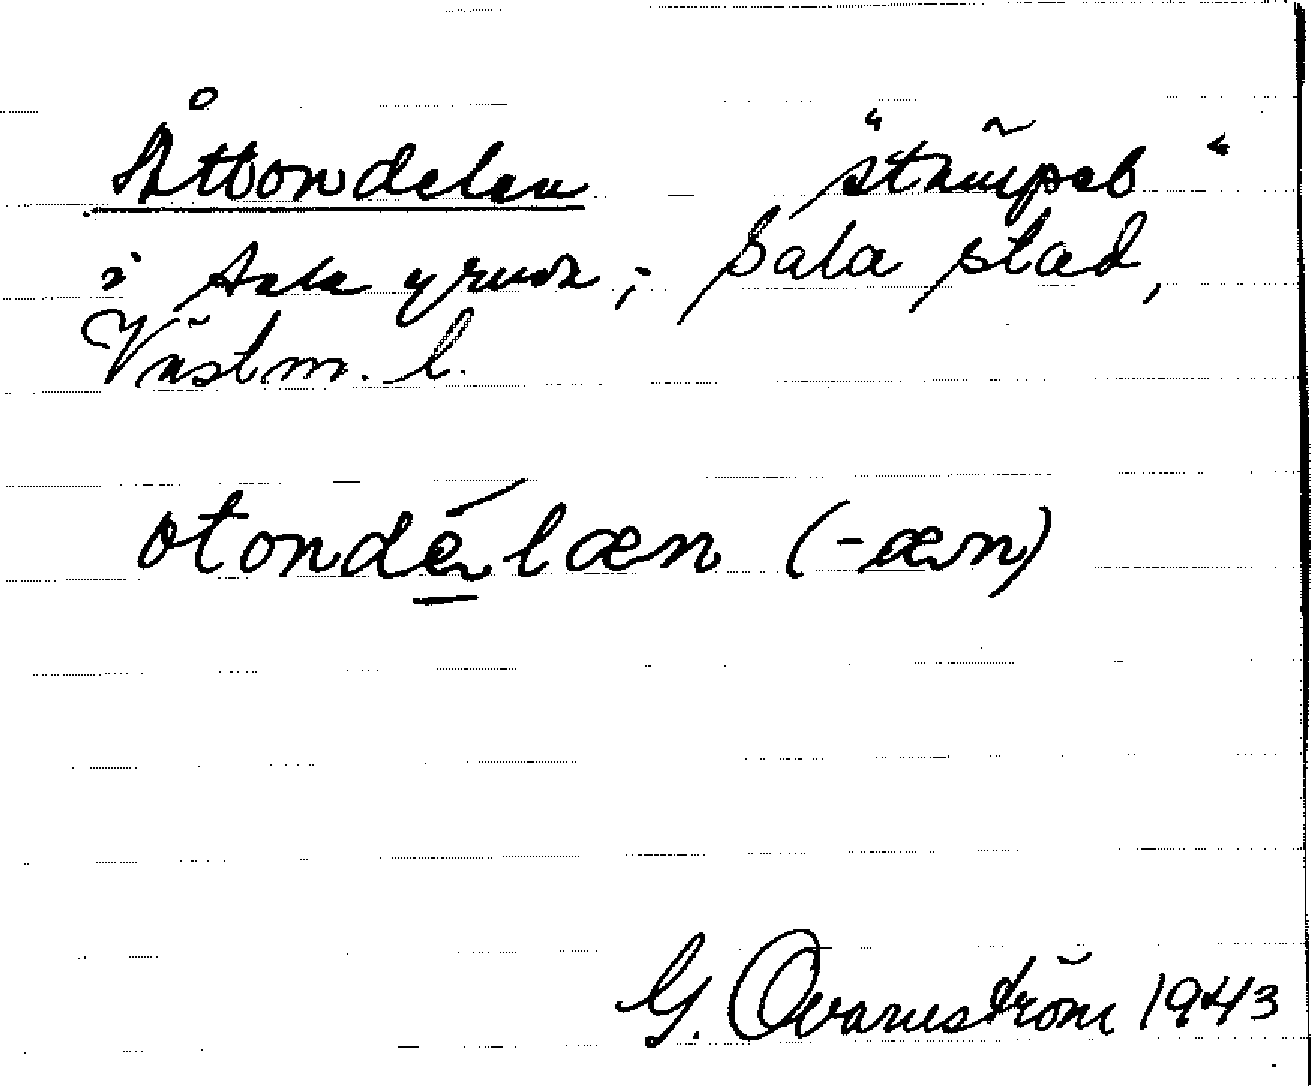 Åttondelen "
i Sala gruva; Sala stad,
Västm. l.
otondélæn (-æn)
G. Qvarnström 1943